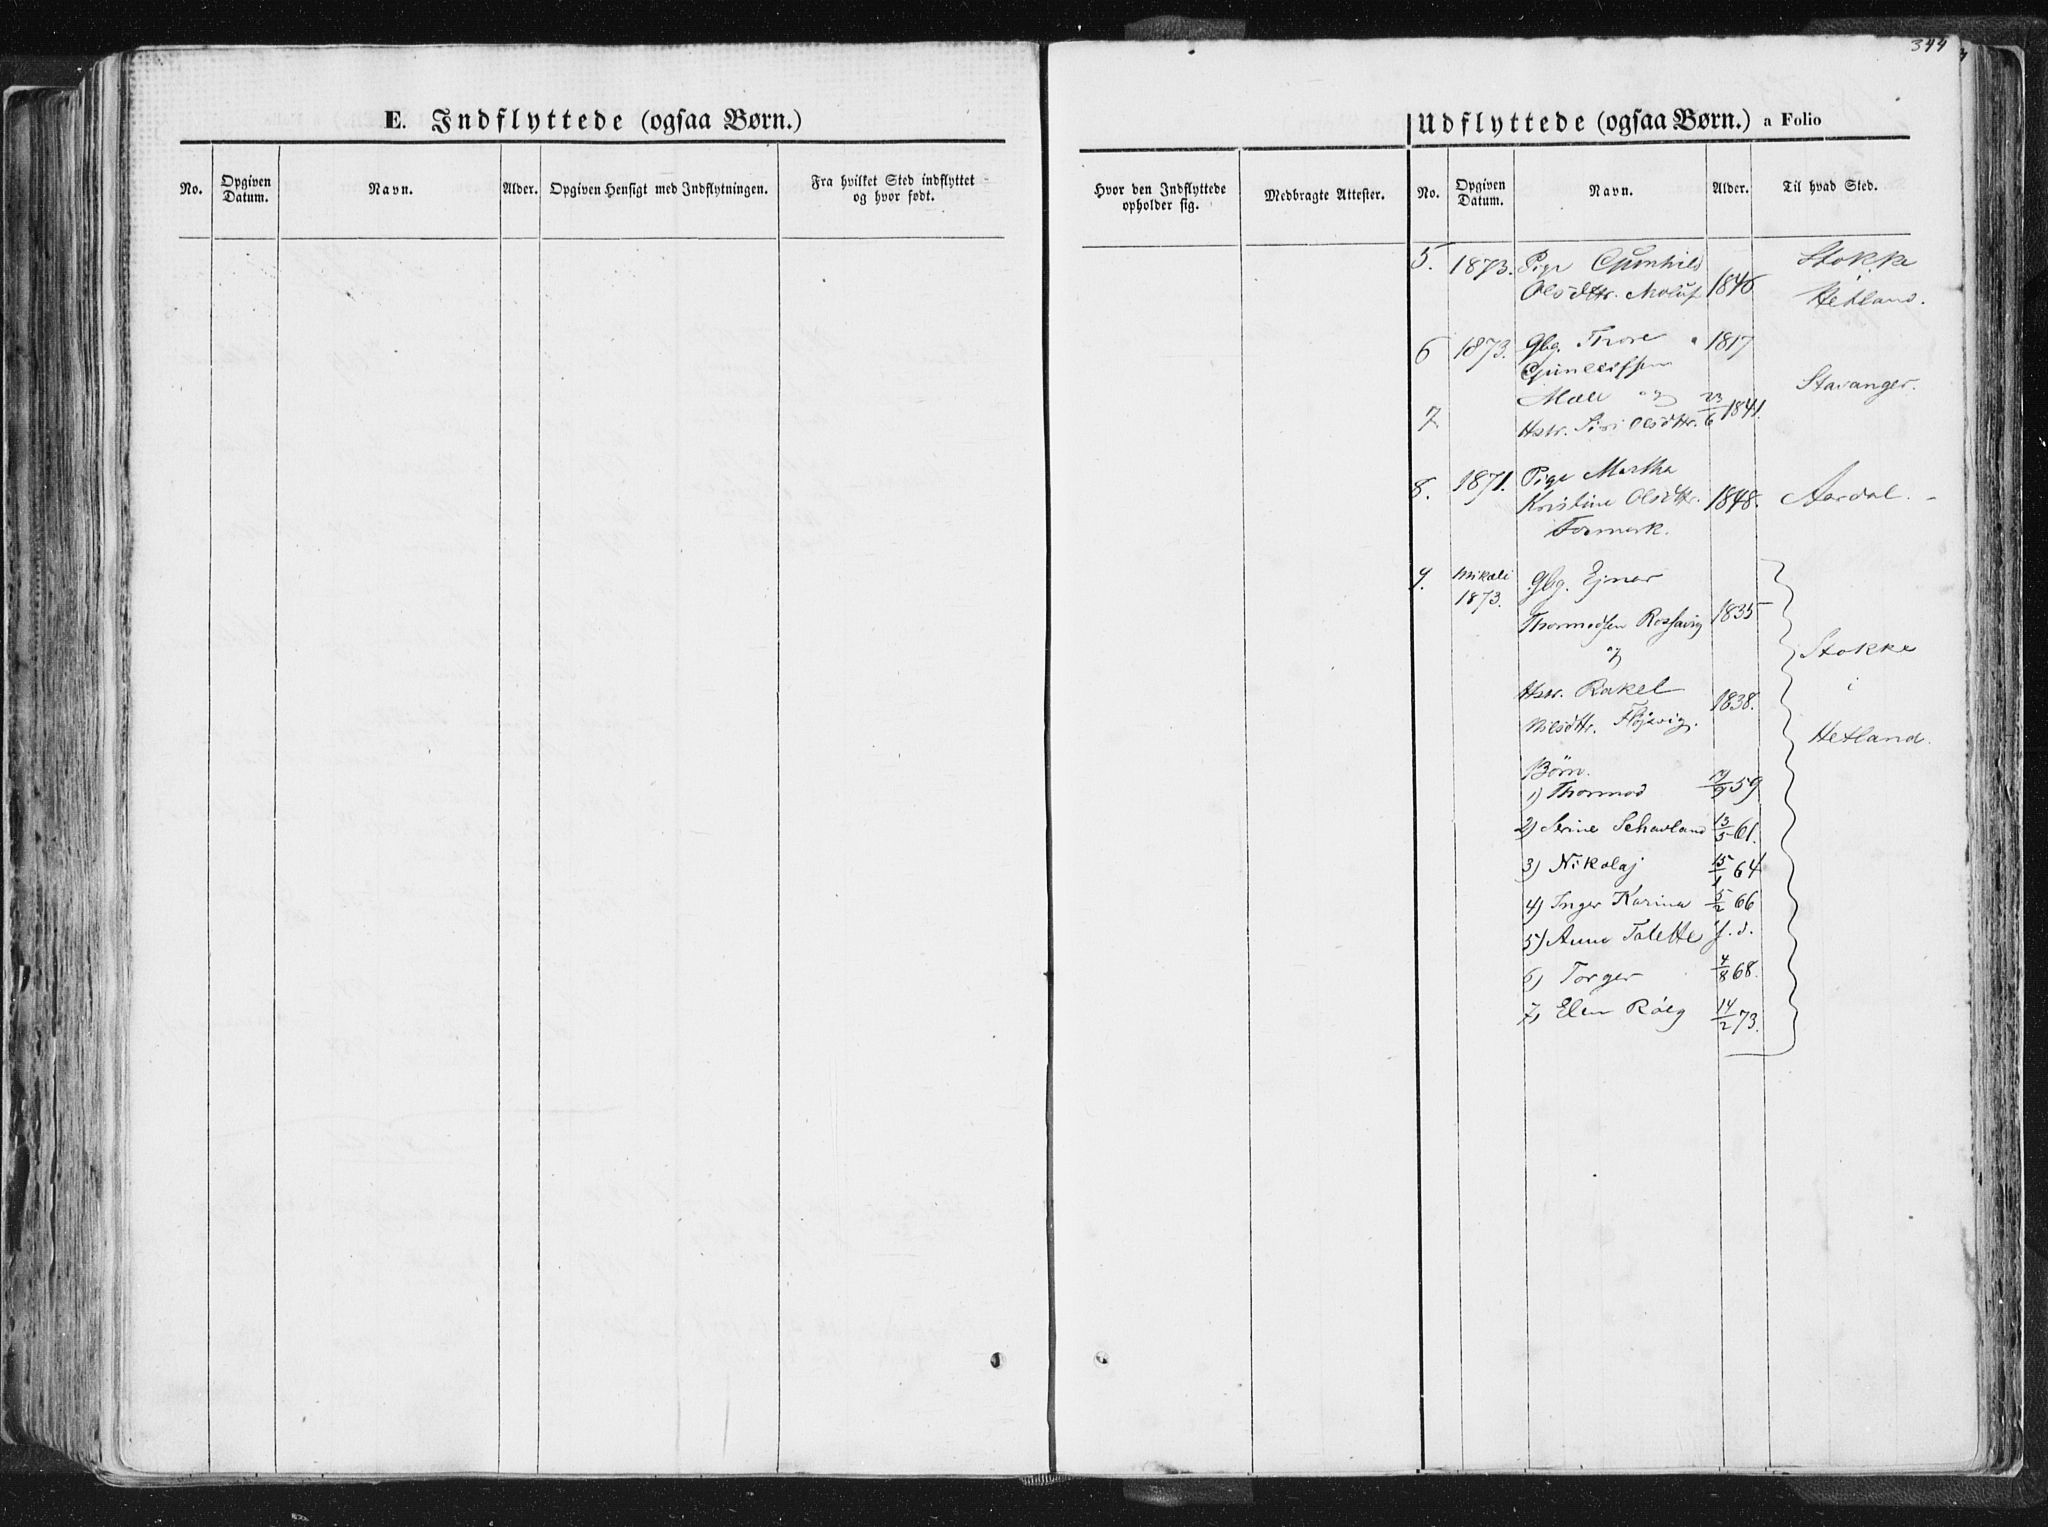 344
E. Indflyttede (ogsaa Børn.)
No.
Opgiven Datum.
Navn.
Alder.
Opgiven Hensigt med Indflytningen.
Fra hvilket Sted indflyttet og hvor født.
Udflyttede (ogsaa Børn.) a Folio
Hvor den Indflyttede opholder sig.
Medbragte Attester.
No.
Opgiven Datum.
Navn.
Alder.
Til hvad Sted.
5. 1873. Pige Gunhild Stokke
Olsdttr. 1846 i Hetland.
6 1873. Gbg. Thore 1817
Stavanger.
Mæle og 23/6 1841.
7 Hstr. Siri Olsdttr.
8. 1871. Pige Martha
Kristine Olsdttr. 1848. Aardal.
Fosmark.
9. Mikæli Gbg. Ejnar
1873.
Thormodsen Rossavig 1835
og Stokke
Hstr. Rakel 1838. i
Nilsdttr. Hetland.
Børn.
1) Thormod 19/9 59
2) Serine Schavland 13/5 61.
3) Nikolaj 15/1 64
4) Inger Karina 5/2 66
5) Anne Talette f. d.
6) Torger 4/8 68.
7) Elen 14/2 73.